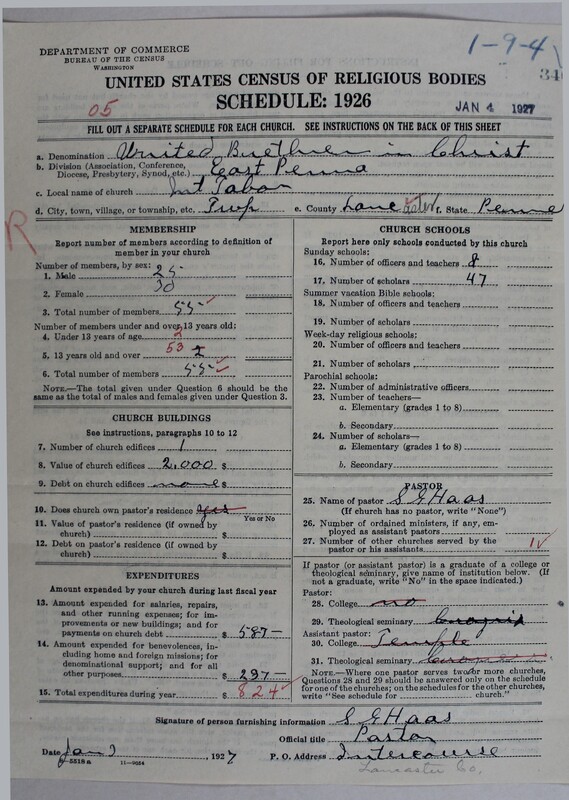 DEPARTMENT OF COMMERCE
BUREAU OF THE CENSUS
WASHINGTON
1-9-4
34
UNITED STATES CENSUS OF RELIGIOUS BODIES
SCHEDULE: 1926
05
JAN 4 1927
FILL OUT A SEPARATE SCHEDULE FOR EACH CHURCH. SEE INSTRUCTIONS ON THE BACK OF THIS SHEET
a. Denomination United Brethren in Christ
b. Division (Association, Conference, Diocese, Presbytery, Synod, etc.) East Penna
c. Local name of church Mt Tabor
d. City, town, village, or township, etc. Twp e. County Lancaster f. State Penna
R
MEMBERSHIP
Report number of members according to definition of
member in your church
Number of members, by sex:
1. Male 25
2. Female 30
3. Total number of members 55
Number of members under and over 13 years old:
4. Under 13 years of age
5. 13 years old and over 53 2
6. Total number of members 55
NOTE.—The total given under Question 6 should be the
same as the total of males and females given under Question 3.
CHURCH BUILDINGS
See instructions, paragraphs 10 to 12
7. Number of church edifices 1
8. Value of church edifices 2,000 $
9. Debt on church edifices none $
10. Does church own pastor's residence yes
Yes or No
11. Value of pastor's residence (if owned by
church) $
12. Debt on pastor's residence (if owned by
church) $
EXPENDITURES
Amount expended by your church during last fiscal year
13. Amount expended for salaries, repairs,
and other running expenses; for im-
provements or new buildings; and for
payments on church debt $ 587-
14. Amount expended for benevolences,
including home and foreign missions; for
denominational support; and for all
other purposes $ 297-
15. Total expenditures during year $ 824
CHURCH SCHOOLS
Report here only schools conducted by this church
Sunday schools:
16. Number of officers and teachers 8
17. Number of scholars 47
Summer vacation Bible schools:
18. Number of officers and teachers
19. Number of scholars
Week-day religious schools:
20. Number of officers and teachers
21. Number of scholars
Parochial schools:
22. Number of administrative officers
23. Number of teachers—
a. Elementary (grades 1 to 8)
b. Secondary
24. Number of scholars—
a. Elementary (grades 1 to 8)
b. Secondary
PASTOR
25. Name of pastor S G Haas
(If church has no pastor, write "None")
26. Number of ordained ministers, if any, em-
ployed as assistant pastors
27. Number of other churches served by the
pastor or his assistants 1
If pastor (or assistant pastor) is a graduate of a college or
theological seminary, give name of institution below. (If
not a graduate, write "No" in the space indicated.)
Pastor:
28. College no
29. Theological seminary
Assistant pastor:
30. College Temple
31. Theological seminary
NOTE.—Where one pastor serves two or more churches,
Questions 28 and 29 should be answered only on the schedule
for one of the churches; on the schedules for the other churches,
write "See schedule for church."
Signature of person furnishing information S G Haas
Official title Pastor
Date Jan 3, 1927 P. O. Address Intercourse
Lancaster Co.
5518a 11—9054